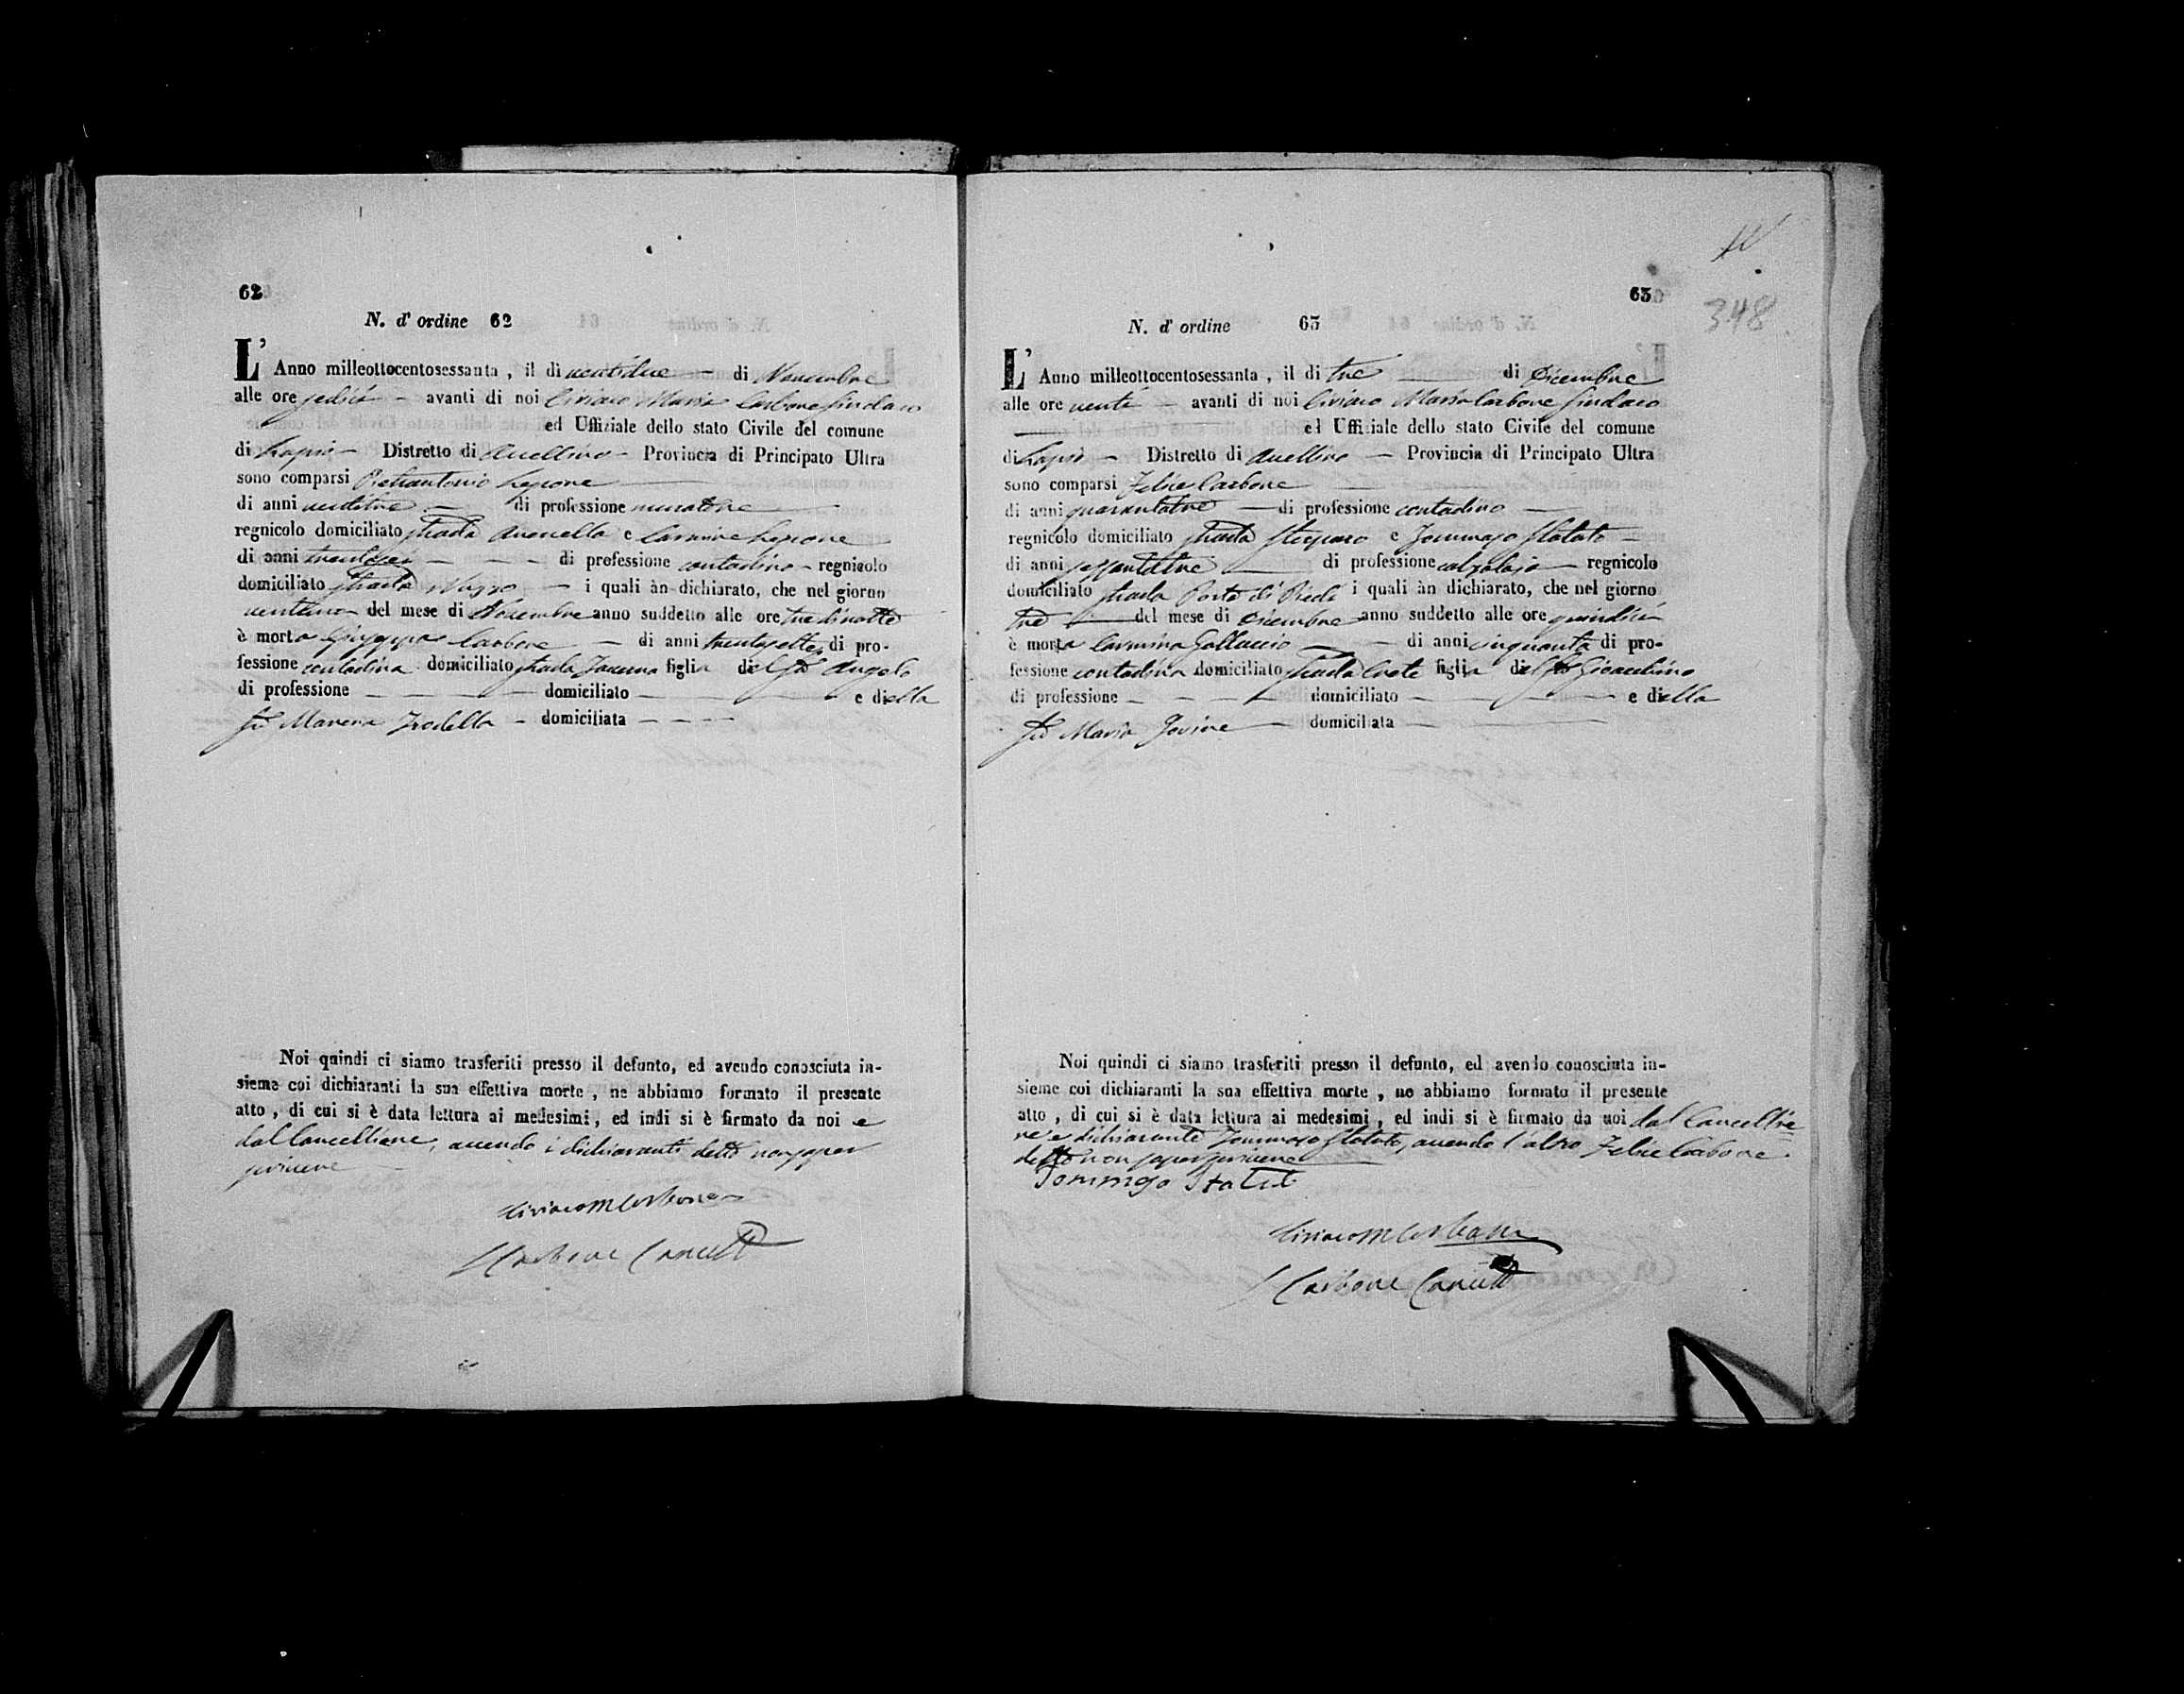 62
N. d' ordine 62
L' Anno milleottocentosessanta, il di ventidue di Novembre
alle ore sedici avanti di noi Ciriaco Maria Carbone Sindaco
ed Uffiziale dello stato Civile del comune
di Lapio Distretto di Avellino Provincia di Principato Ultra
sono comparsi Pietrantonio Lepone
di anni ventitre di professione muratore
regnicolo domiciliato strada e Carmine Lepone
di anni trentasei di professione contadino regnicolo
domiciliato strada i quali àn dichiarato, che nel giorno
ventuno del mese di Novembre anno suddetto alle ore tre di notte
è morta Giuseppa Carbone di anni trentasette di pro-
fessione contadina domiciliato strada Taverna figlia del fu Angelo
di professione domiciliato e della
fu domiciliata
Noi quindi ci siamo trasferiti presso il defunto, ed avendo conosciuta in-
sieme coi dichiaranti la sua effettiva morte, ne abbiamo formato il presente
atto, di cui si è data lettura ai medesimi, ed indi si è firmato da noi e
dal Cancelliere, avendo i dichiaranti detto non saper
scrivere
Ciriaco M Carbone
Carbone Cancell
63
348
N. d' ordine 63
L' Anno milleottocentosessanta, il di tre di Dicembre
alle ore venti avanti di noi Ciriaco Maria Carbone Sindaco
ed Uffiziale dello stato Civile del comune
di Lapio Distretto di Avellino Provincia di Principato Ultra
sono comparsi Felice Carbone
di anni quarantatre di professione contadino
regnicolo domiciliato strada e Tommaso Statuto
di anni sessantatre di professione calzolajo regnicolo
domiciliato strada Porta di Piedi i quali àn dichiarato, che nel giorno
tre del mese di Dicembre anno suddetto alle ore quindici
è morta Carmina Galluccio di anni cinquanta di pro-
fessione contadina domiciliato strada figlia del fu Gioacchino
di professione domiciliato e della
fu Maria Jovine domiciliata
Noi quindi ci siamo trasferiti presso il defunto, ed avendo conosciuta in-
sieme coi dichiaranti la sua effettiva morte, ne abbiamo formato il presente
atto, di cui si è data lettura ai medesimi, ed indi si è firmato da noi dal Cancellie
re e dichiarante Tommaso Statuto, avendo l'altro Felice Carbone
detto non saper scrivere
Tommaso Statut
Ciriaco M Carbone
Carbone Cancell